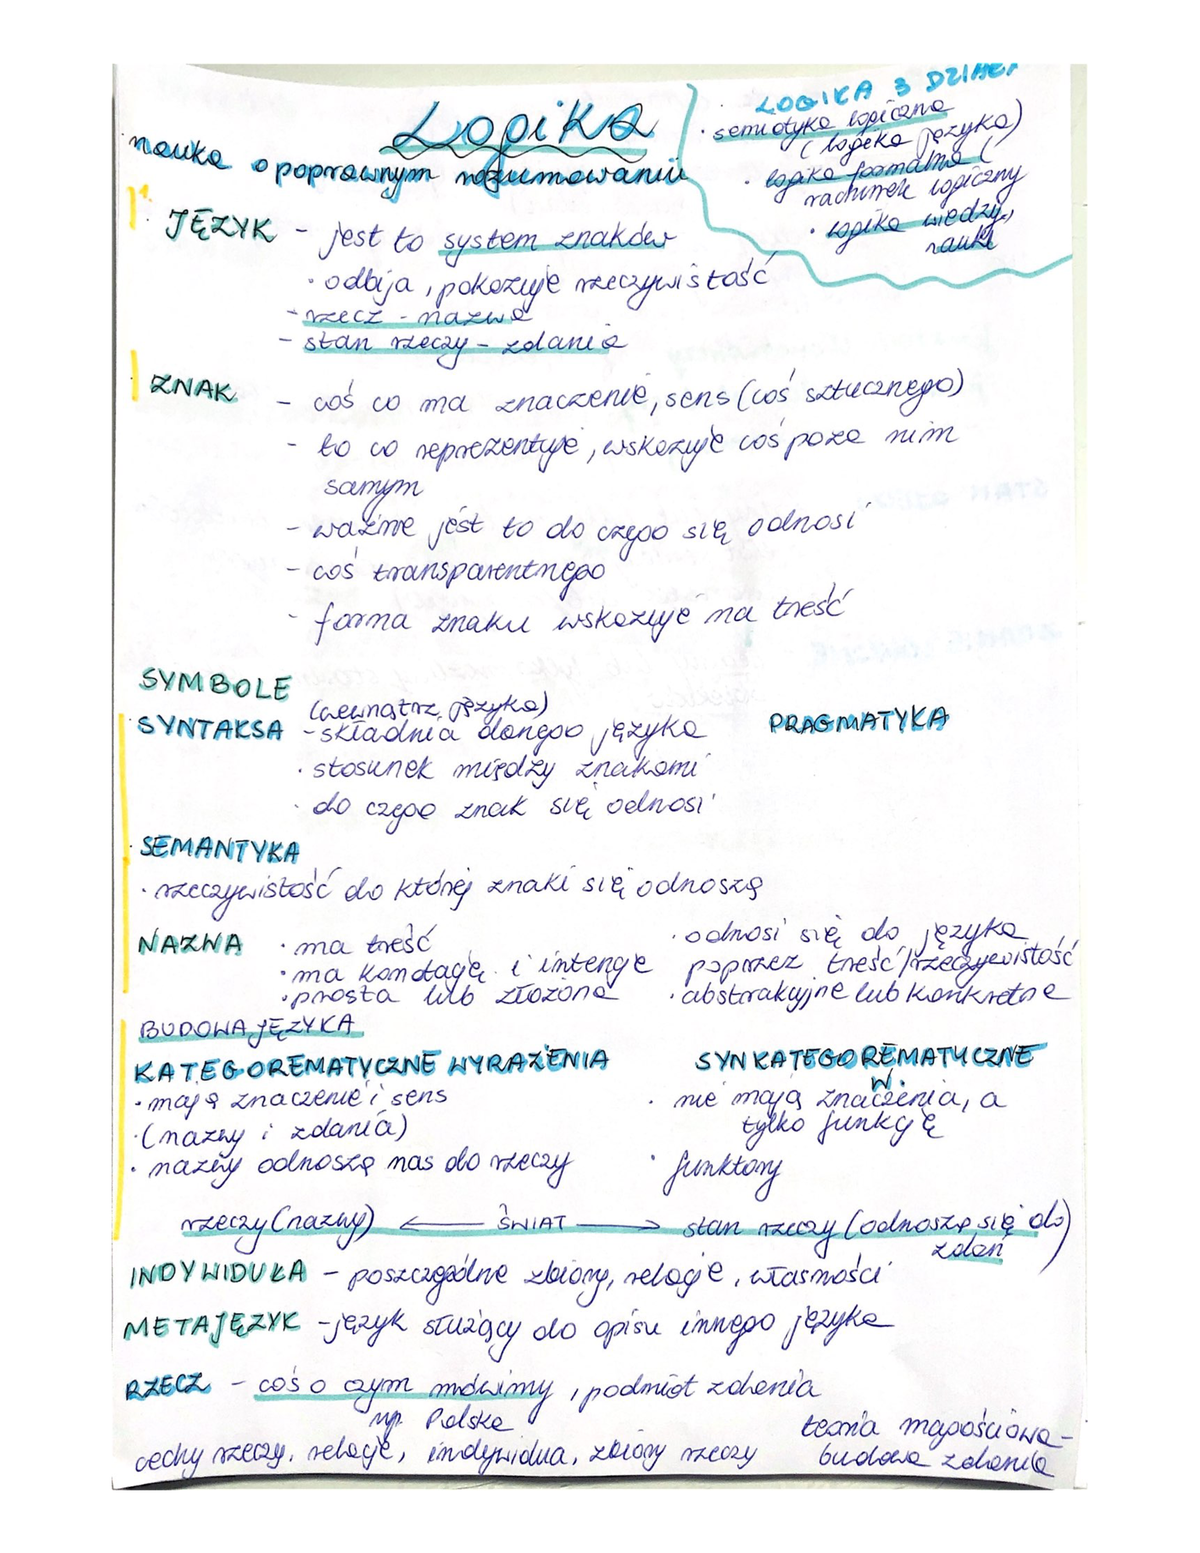 Logika
nauka o poprawnym rozumowaniu
LOGIKA 3 DZIAŁY
· semiotyka logiczna
(logika języka)
· logika formalna (
rachunek logiczny
· logika wiedzy,
nauki
JĘZYK - jest to system znaków
· odbija, pokazuje rzeczywistość
- rzecz - nazwa
- stan rzeczy - zdania
ZNAK - coś co ma znaczenie, sens (coś sztucznego)
- to co reprezentuje, wskazuje coś poza nim
samym
- ważne jest to do czego się odnosi
- coś transparentnego
- forma znaku wskazuje na treść
SYMBOLE
(wewnątrz języka)
SYNTAKSA - składnia danego języka
PRAGMATYKA
· stosunek między znakami
· do czego znak się odnosi
SEMANTYKA
· rzeczywistość do której znaki się odnoszą
NAZWA · ma treść
· ma konotację i intencje
· prosta lub złożona
· odnosi się do języka
poprzez treść/rzeczywistość
· abstrakcyjne lub konkretne
BUDOWA JĘZYKA
KATEGOREMATYCZNE WYRAŻENIA
· mają znaczenie i sens
· (nazwy i zdania)
· nazwy odnoszą nas do rzeczy
SYNKATEGOREMATYCZNE
W.
· nie mają znaczenia, a
tylko funkcję
· funktory
rzeczy (nazwy) ← ŚWIAT → stan rzeczy (odnoszą się do)
zdań
INDYWIDUŁA - poszczególne zbiory, relacje, własności
METAJĘZYK - język służący do opisu innego języka
RZECZ - coś o czym mówimy, podmiot zdania
np. Polska
cechy rzeczy, relacje, indywidua, zbiory rzeczy
teoria
budowa zdania